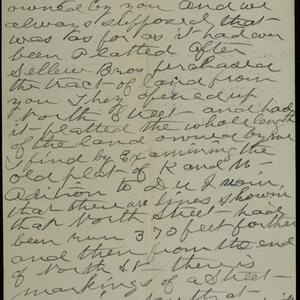 owned by you and we
always supposed that
was as far as it had ever
been Platted after
Sellew Bros purchased
the tract of land from
you They opened up
North Street and had
it platted the whole length
of the land owned by me
I find by Examining the
old plat of K and N
Adition to
that there are lines shown
that North Street had
been run 370 feet forther
and then from the end
of North St there is
markings of a Street
that